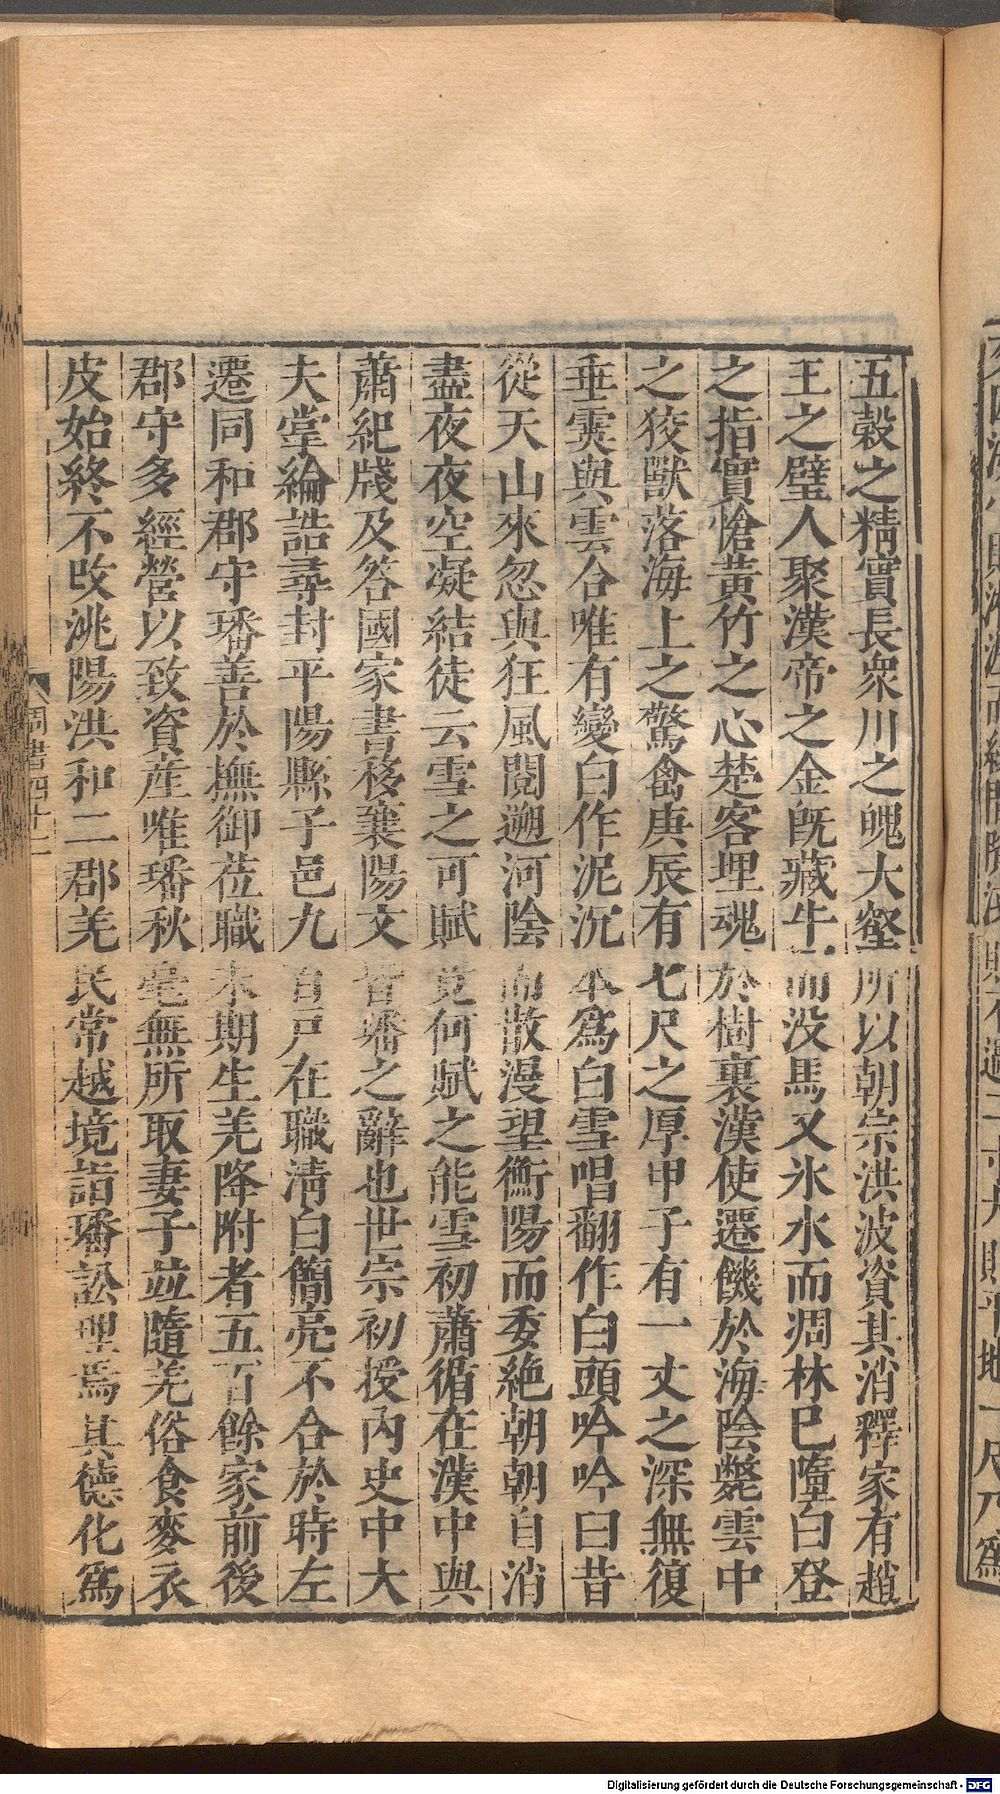 五穀之精實長衆川之魄大壑所以朝宗洪波資其消釋家有趙
王之璧人聚漢帝之金旣藏牛而没馬又氷水而凋林巳墮白登
之指實愴黃竹之心楚客埋魂於樹裏漢使遷饑於海陰斃雲中
之狡獸落海上之驚禽庚辰有七尺之厚甲子有一丈之深無復
垂霙與雲合唯有變白作泥沉本爲白雪唱翻作白頭吟吟曰昔
從天山來忽與狂風閲遡河陰而散漫望衡陽而委絶朝朝自消
盡夜夜空凝結徒云雪之可賦竟何賦之能雪初蕭循在漢中與
蕭紀牋及答國家書移襄陽文皆璠之辭也世宗初授內史中大
夫掌綸誥尋封平陽縣子邑九百戸在職淸白簡亮不合於時左
遷同和郡守璠善於撫御莅職未期生羌降附者五百餘家前後
郡守多經營以致資産唯璠秋毫無所取妻子並隨羌俗食麥衣
皮始終不改洮陽洪和二郡羌民常越境詣璠訟理焉其德化爲
周書四十二
Digitalisierung gefördert durch die Deutsche Forschungsgemeinschaft - DFG